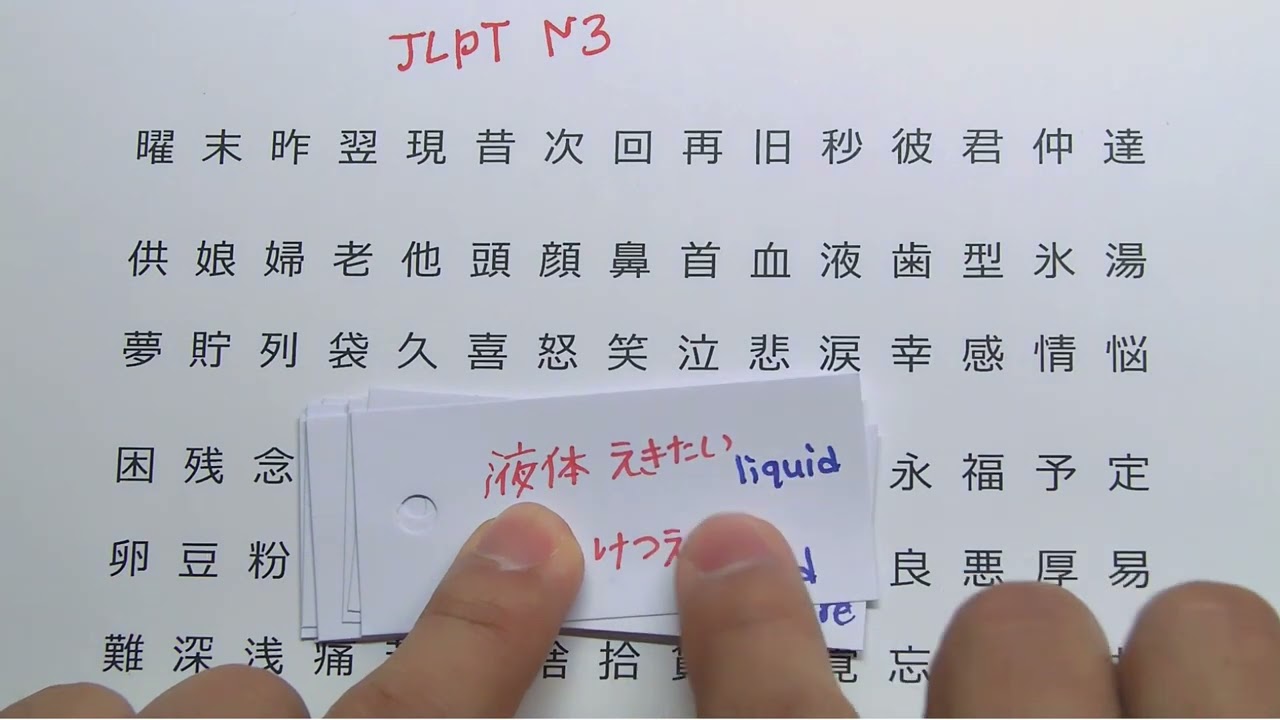 JLPT N3
曜 末 昨 翌 現 昔 次 回 再 旧 秒 彼 君 仲 達
供 娘 婦 老 他 頭 顔 鼻 首 血 液 歯 型 氷 湯
夢 貯 列 袋 久 喜 怒 笑 泣 悲 涙 幸 感 情 悩
困 残 念
液体 えきたい liquid
永 福 予 定
卵 豆 粉
けつえ
良 悪 厚 易
難 深 浅 痛
捨 拾
忘